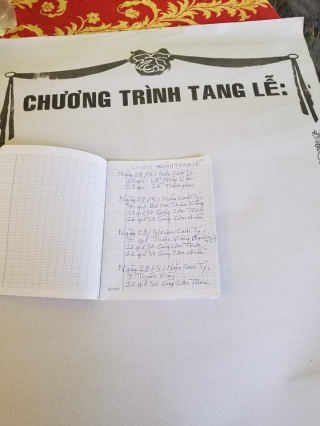 CHƯƠNG TRÌNH TANG LỄ:
CHƯƠNG TRÌNH TANG LỄ
Ngày 26/5/ Năm Canh Tý
giờ Lễ Nhập Liệm
giờ Lễ Thành phục
Ngày 27/5/ Năm Canh Tý
7 giờ Thăm Viếng
giờ 30 Cúng Cơm Trưa
16 giờ 30 Cúng Cơm chiều
Ngày 28/5/ Năm Canh Tý
7 giờ Thăm Viếng
giờ 30 Cúng Cơm Trưa
16 giờ 30 Cúng Cơm chiều
Ngày 29/5/ Năm Canh Tý
Thăm Viếng
10 giờ 30 Cúng Cơm Trưa